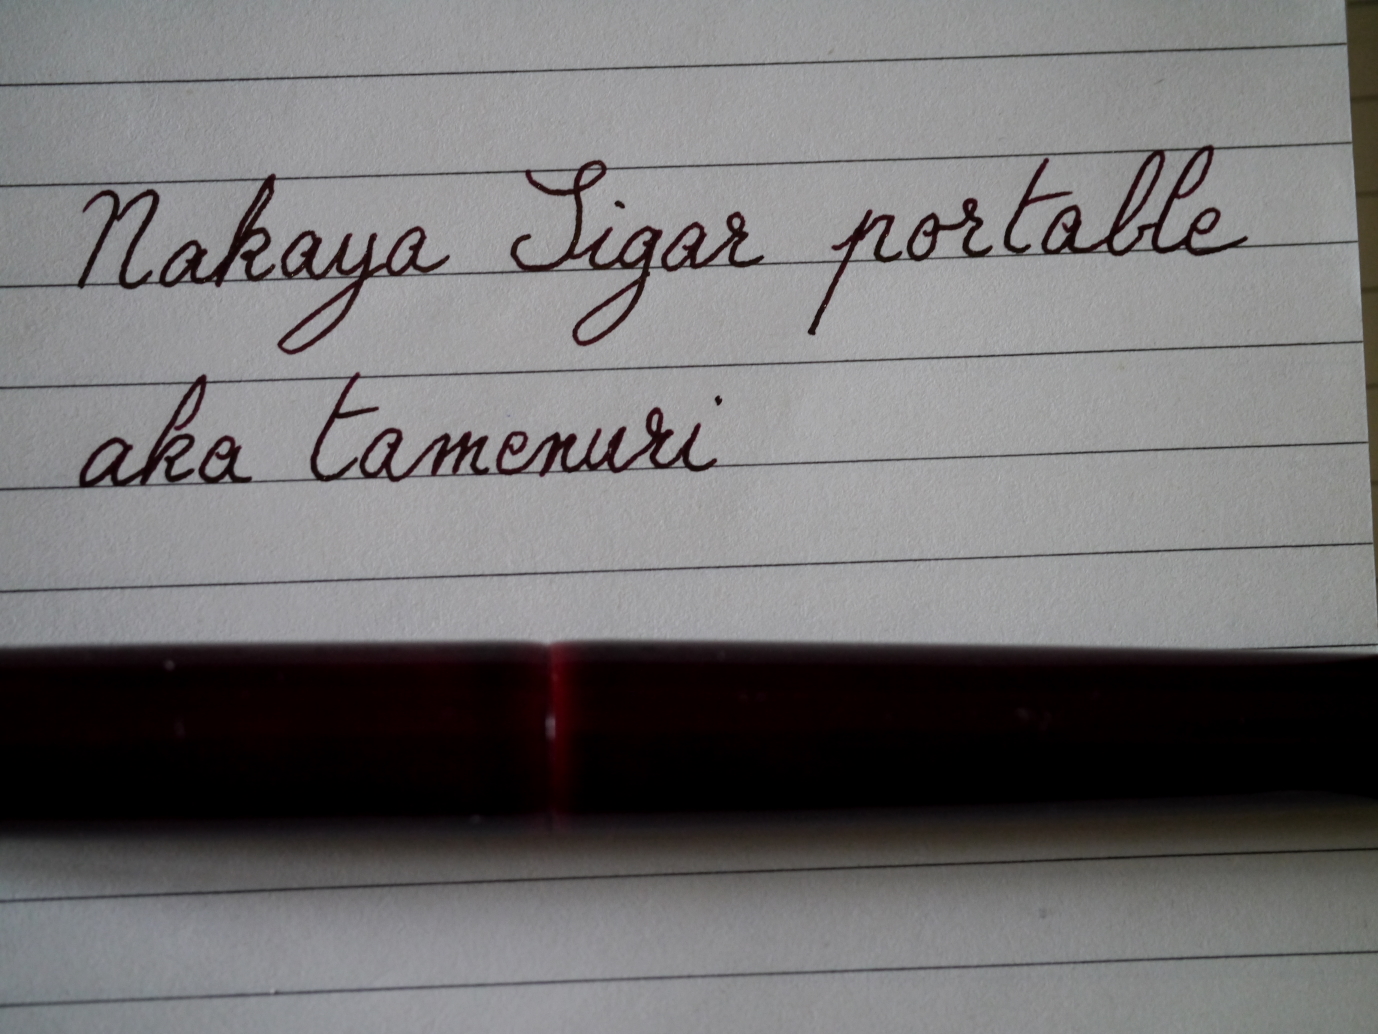 Nakaya Sigar portable
aka tamenuri